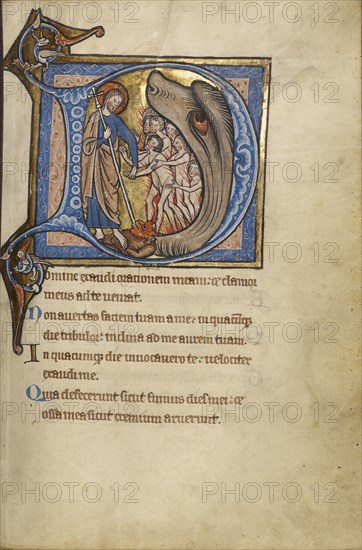 omine exaudi orationem meam: et clamor
meus ad te veniat.
Non avertas faciem tuam a me: in quacumq;
die tribulor: inclina ad me aurem tuam.
In quacumq; die invocavero te: velociter
exaudi me.
Quia defecerunt sicut fumus dies mei: et
ossa mea sicut cremium aruerunt.
PHOTO 12